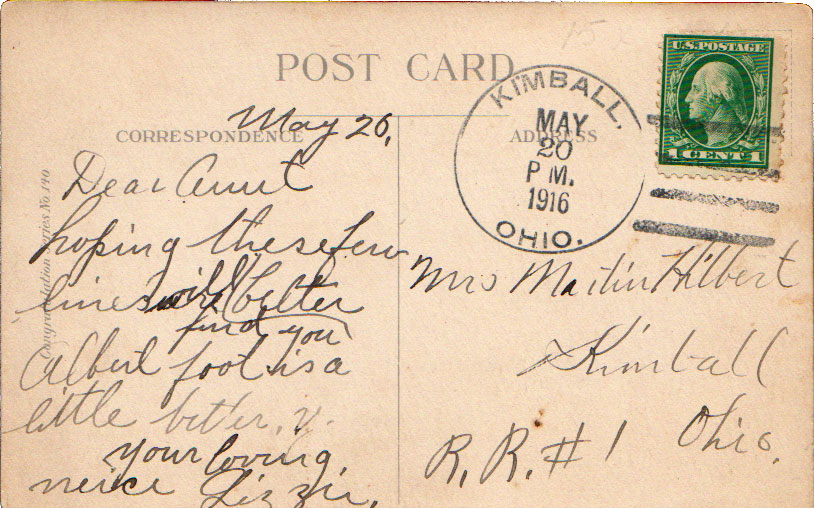 POST CARD
CORRESPONDENCE
ADDRESS
U.S. POSTAGE
1 CENT 1
KIMBALL,
MAY
20
P M.
1916
OHIO.
May 20,
Dear Aunt
hoping these few
lines will better
find you
Albert foot is a
little better.
your loving
neice Lizzie.
Mrs Martin Hilbert
Kimball
Ohio.
R. R. # 1
Congratulation Series No. 140